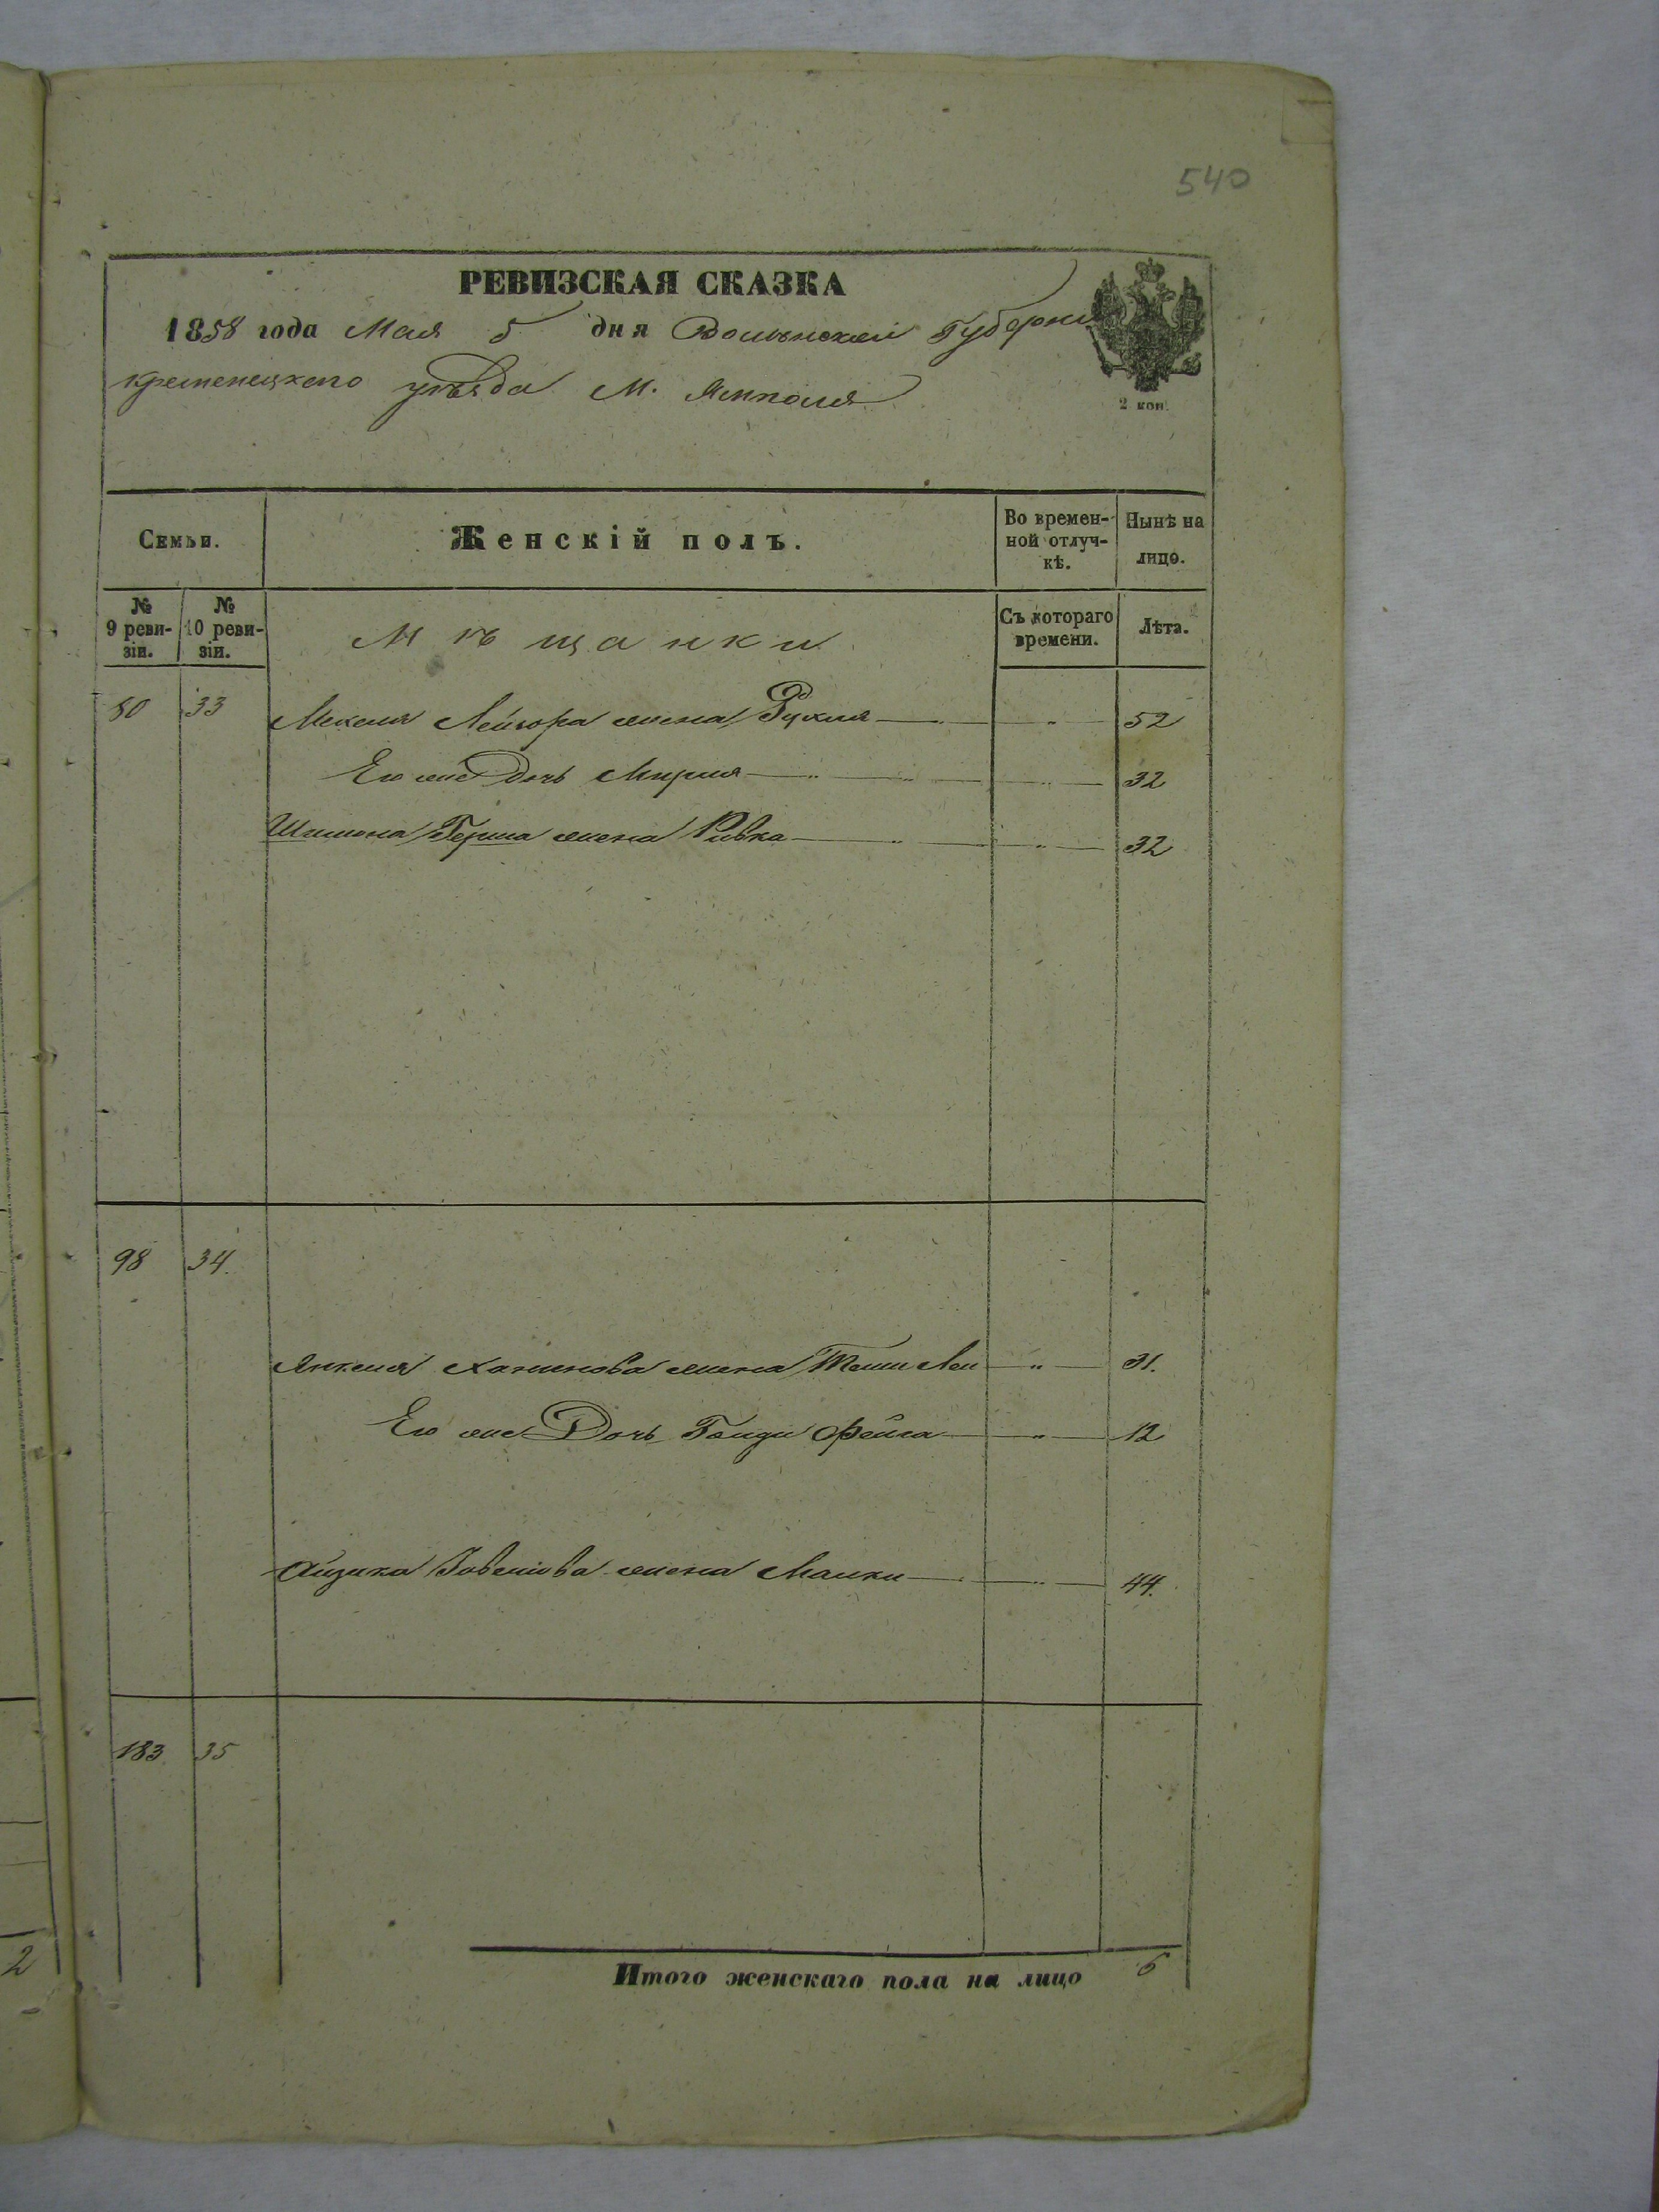 540
РЕВИЗСКАЯ СКАЗКА
1858 года Мая 5 дня Волынской Губернии
Кременецкого уѣзда М. Ямполя
2 коп.
Семьи.
Женскій полъ.
Во времен-
ной отлуч-
кѣ.
Нынѣ на
лицо.
№
9 реви-
зіи.
№
10 реви-
зіи.
Мѣщанки
Съ котораго
времени.
Лѣта.
80 33 Лейзора жена Рухля " 52
Его же Дочь Мирля " 32
Шимона Герша жена Ривка " 32
98 34.
Янкеля жена " 31.
Его же Дочь Фейга " 12
Айзика жена Малки " 44.
183 35
Итого женскаго пола на лицо 6
2